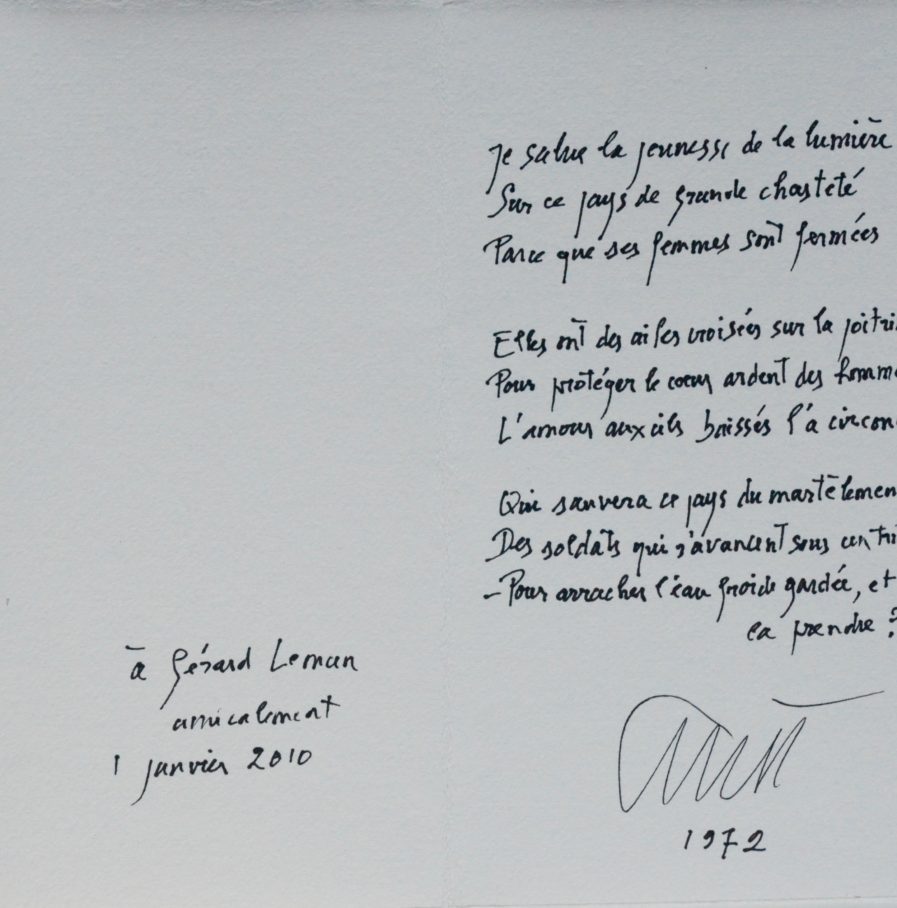 à Gérard Leman
amicalement
1 janvier 2010
Je salue la jeunesse de la lumière
Sur ce pays de grande chasteté
Parce que ses femmes sont fermées
Elles ont des ailes croisées sur la poitri
Pour protéger le cœur ardent des homm
L'amour aux cils baissés l'a circon
Qui sauvera ce pays du martèlemen
Des soldats qui s'avancent sous un
- Pour arracher l'eau froide gardée, et
la prendre ?
1972